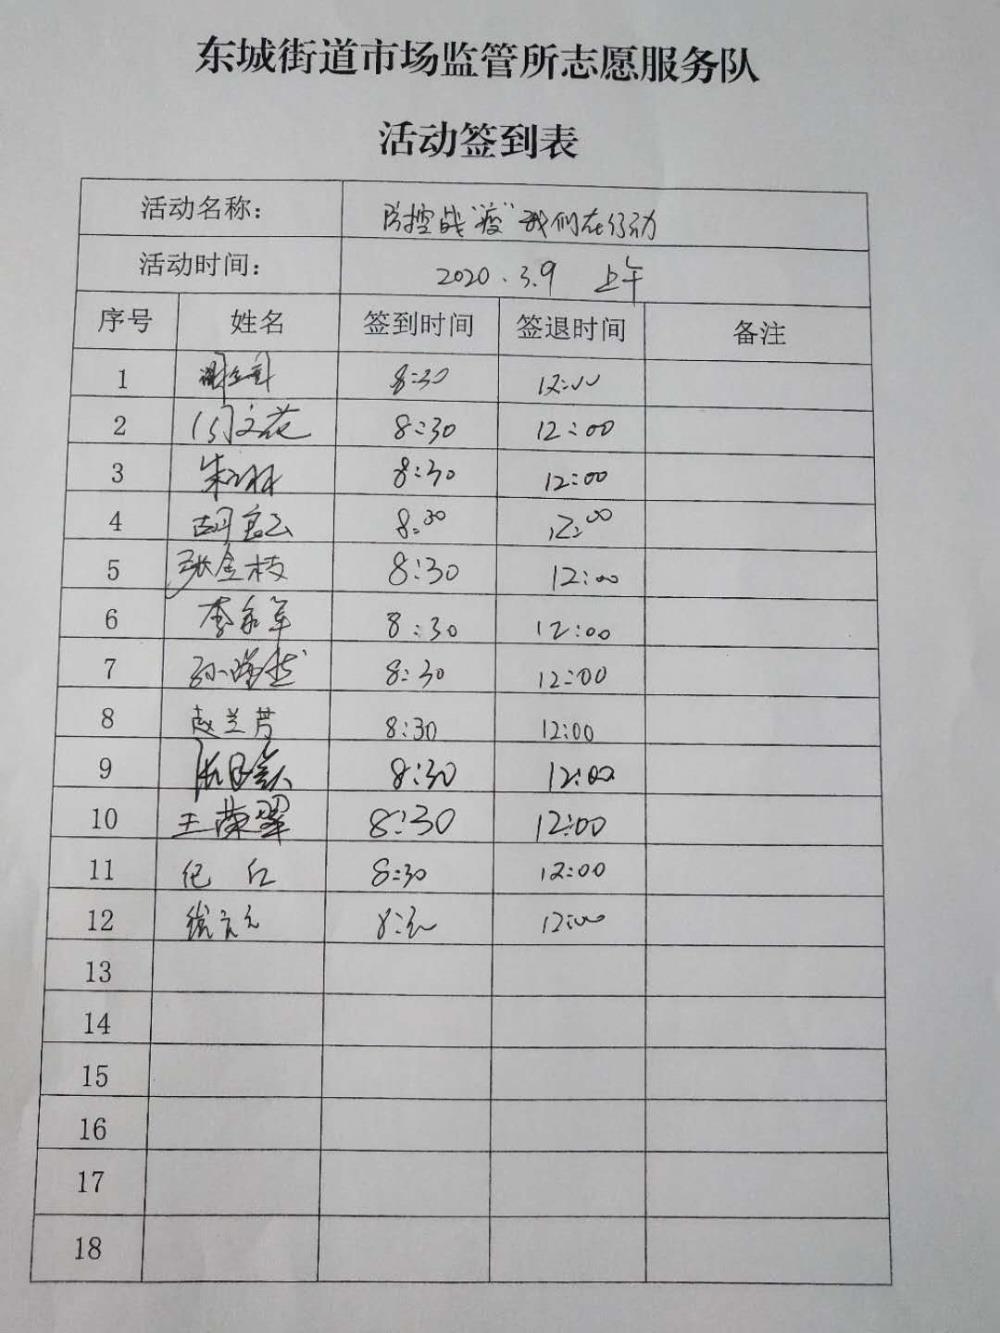 东城街道市场监管所志愿服务队
活动签到表
活动名称： 防控战“疫”我们在行动
活动时间： 2020.3.9 上午
序号 姓名 签到时间 签退时间 备注
1 8:30 12:00
2 闫文花 8:30 12:00
3 8:30 12:00
4 8:30 12:00
5 张金枝 8:30 12:00
6 李永军 8:30 12:00
7 8:30 12:00
8 赵兰芳 8:30 12:00
9 8:30 12:00
10 王荣翠 8:30 12:00
11 纪红 8:30 12:00
12 8:30 12:00
13
14
15
16
17
18